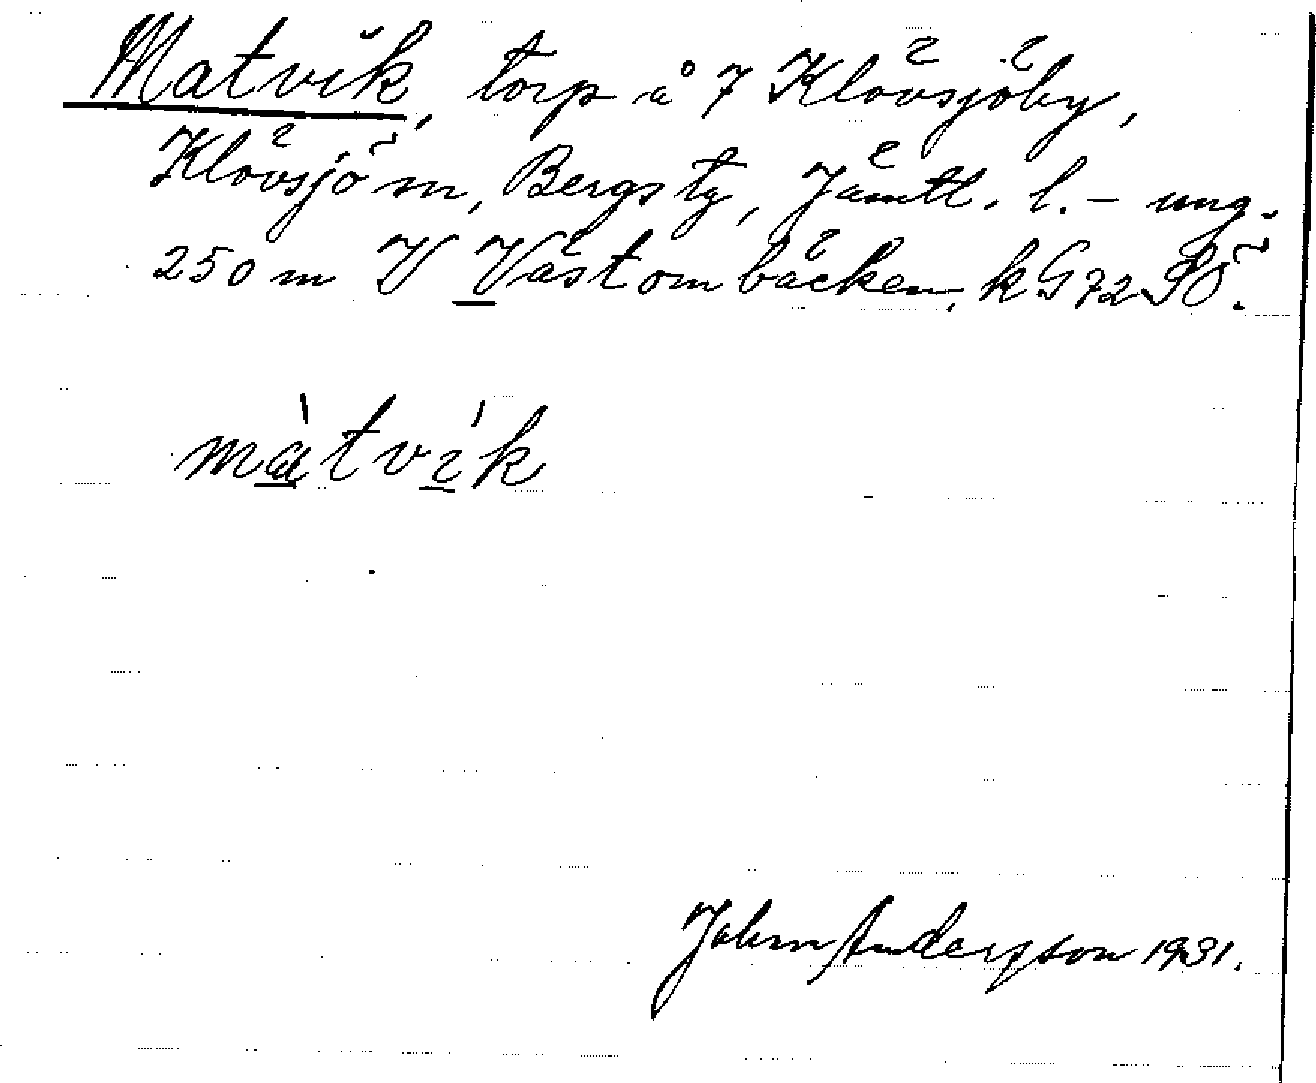 Matvik, torp å 7 Klövsjöby,
Klövsjö sn, Bergs tg, Jämtl. l. – ung.
250 m V Västombäcken, kG 72 SÖ.
màtvìk
John Andersson 1931.